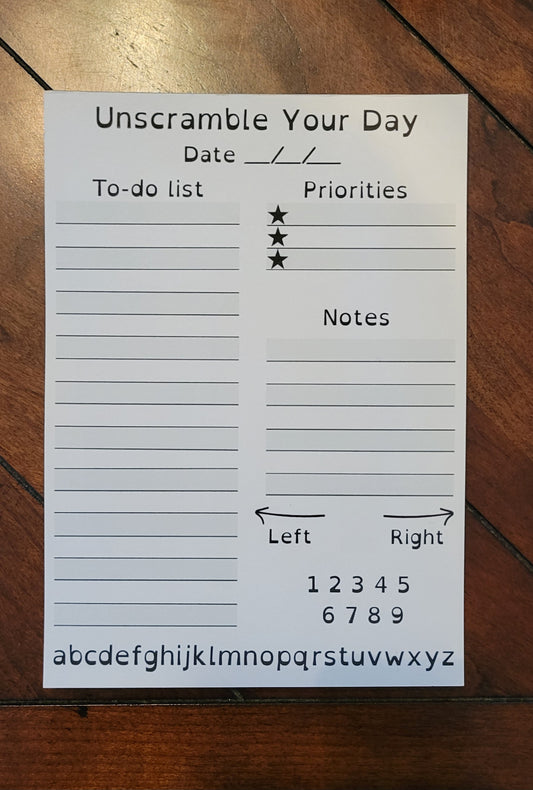 Unscramble Your Day
Date __/__/__
To-do list
Priorities
Notes
Left
Right
1 2 3 4 5
6 7 8 9
abcdefghijklmnopqrstuvwxyz